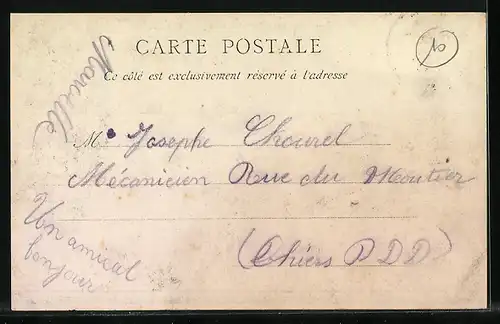 CARTE POSTALE
Ce côté est exclusivement réservé à l'adresse
Marcelle
M. Josephe Chourel
Mécanicien Rue du Moutier
(Thiers P D D)
Un amical
bonjour
10